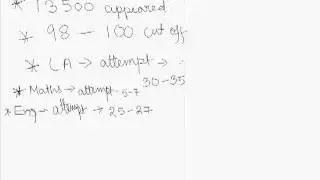 * 13500 appeared
* 98 - 100 cut off
* LA → attempt → 30-35
* Maths → attempt 5-7
* Eng → attempt → 25-27